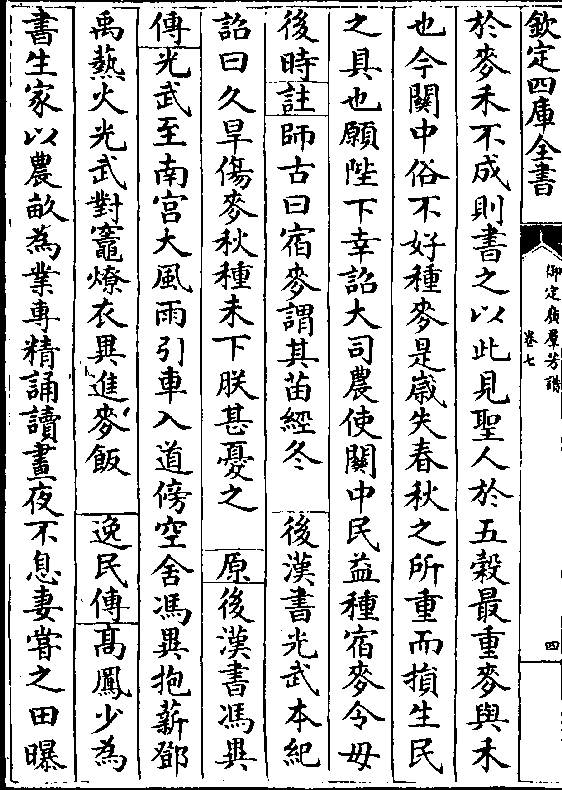 欽定四庫全書
御定廣羣芳譜
卷七
四
於麥禾不成則書之以此見聖人於五穀最重麥與禾
也今關中俗不好種麥是嵗失春秋之所重而損生民
之具也願陛下幸詔大司農使關中民益種宿麥令毋
後時 註 師古曰宿麥謂其苗經冬 後漢書光武本紀
詔曰久旱傷麥秋種未下朕甚憂之 原 後漢書馮異
傳 光武至南宮大風雨引車入道傍空舍馮異抱薪鄧
禹爇火光武對竈燎衣異進麥飯 逸民傳 高鳳少為
書生家以農畝為業専精誦讀晝夜不息妻甞之田曝